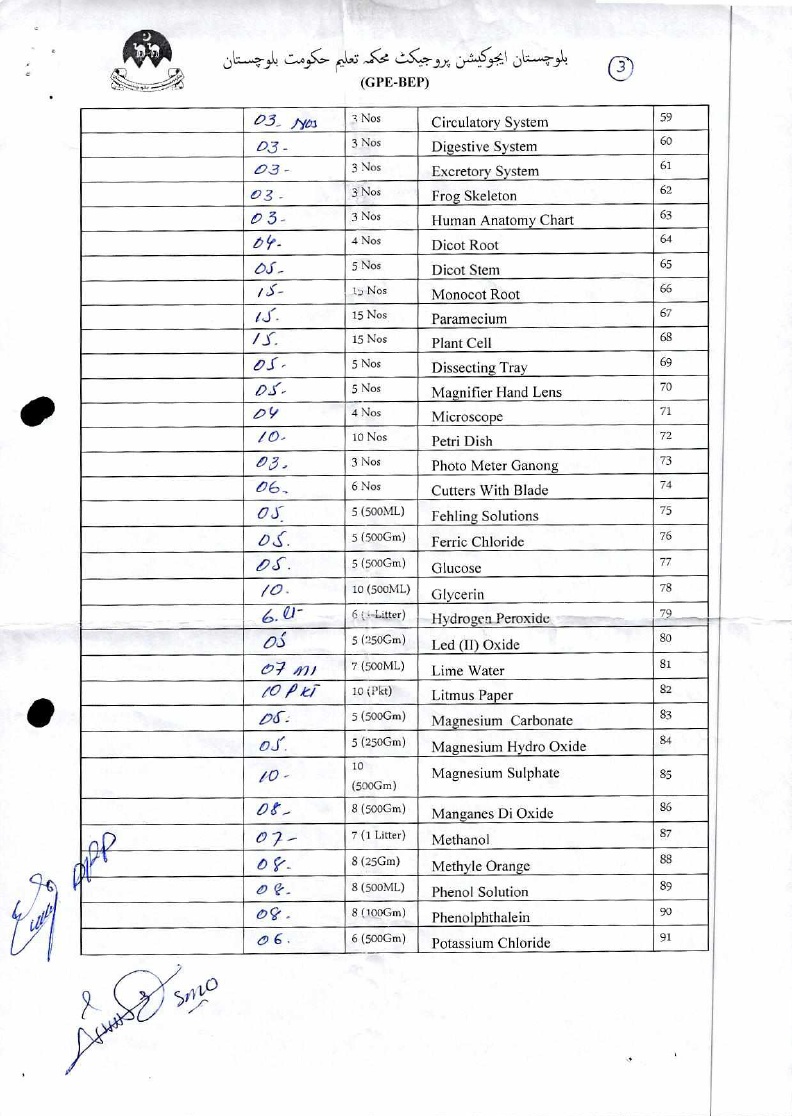 بلوچستان ایجوکیشن پروجیکٹ محکمہ تعلیم حکومت بلوچستان
(GPE-BEP)
3
03- Nos 3 Nos Circulatory System 59
03- 3 Nos Digestive System 60
03- 3 Nos Excretory System 61
03- 3 Nos Frog Skeleton 62
03- 3 Nos Human Anatomy Chart 63
04- 4 Nos Dicot Root 64
05- 5 Nos Dicot Stem 65
15- 15 Nos Monocot Root 66
15. 15 Nos Paramecium 67
15. 15 Nos Plant Cell 68
05- 5 Nos Dissecting Tray 69
05- 5 Nos Magnifier Hand Lens 70
04 4 Nos Microscope 71
10- 10 Nos Petri Dish 72
03. 3 Nos Photo Meter Ganong 73
06- 6 Nos Cutters With Blade 74
05. 5 (500ML) Fehling Solutions 75
05. 5 (500Gm) Ferric Chloride 76
05. 5 (500Gm) Glucose 77
10. 10 (500ML) Glycerin 78
6. 6 Litter) Hydrogen Peroxide 79
05 5 (250Gm) Led (II) Oxide 80
07 ml 7 (500ML) Lime Water 81
10 Pkt 10 (Pkt) Litmus Paper 82
05. 5 (500Gm) Magnesium Carbonate 83
05. 5 (250Gm) Magnesium Hydro Oxide 84
10- 10 (500Gm) Magnesium Sulphate 85
08- 8 (500Gm) Manganes Di Oxide 86
07- 7 (1 Litter) Methanol 87
08- 8 (25Gm) Methyle Orange 88
08- 8 (500ML) Phenol Solution 89
08- 8 (100Gm) Phenolphthalein 90
06. 6 (500Gm) Potassium Chloride 91
SMO